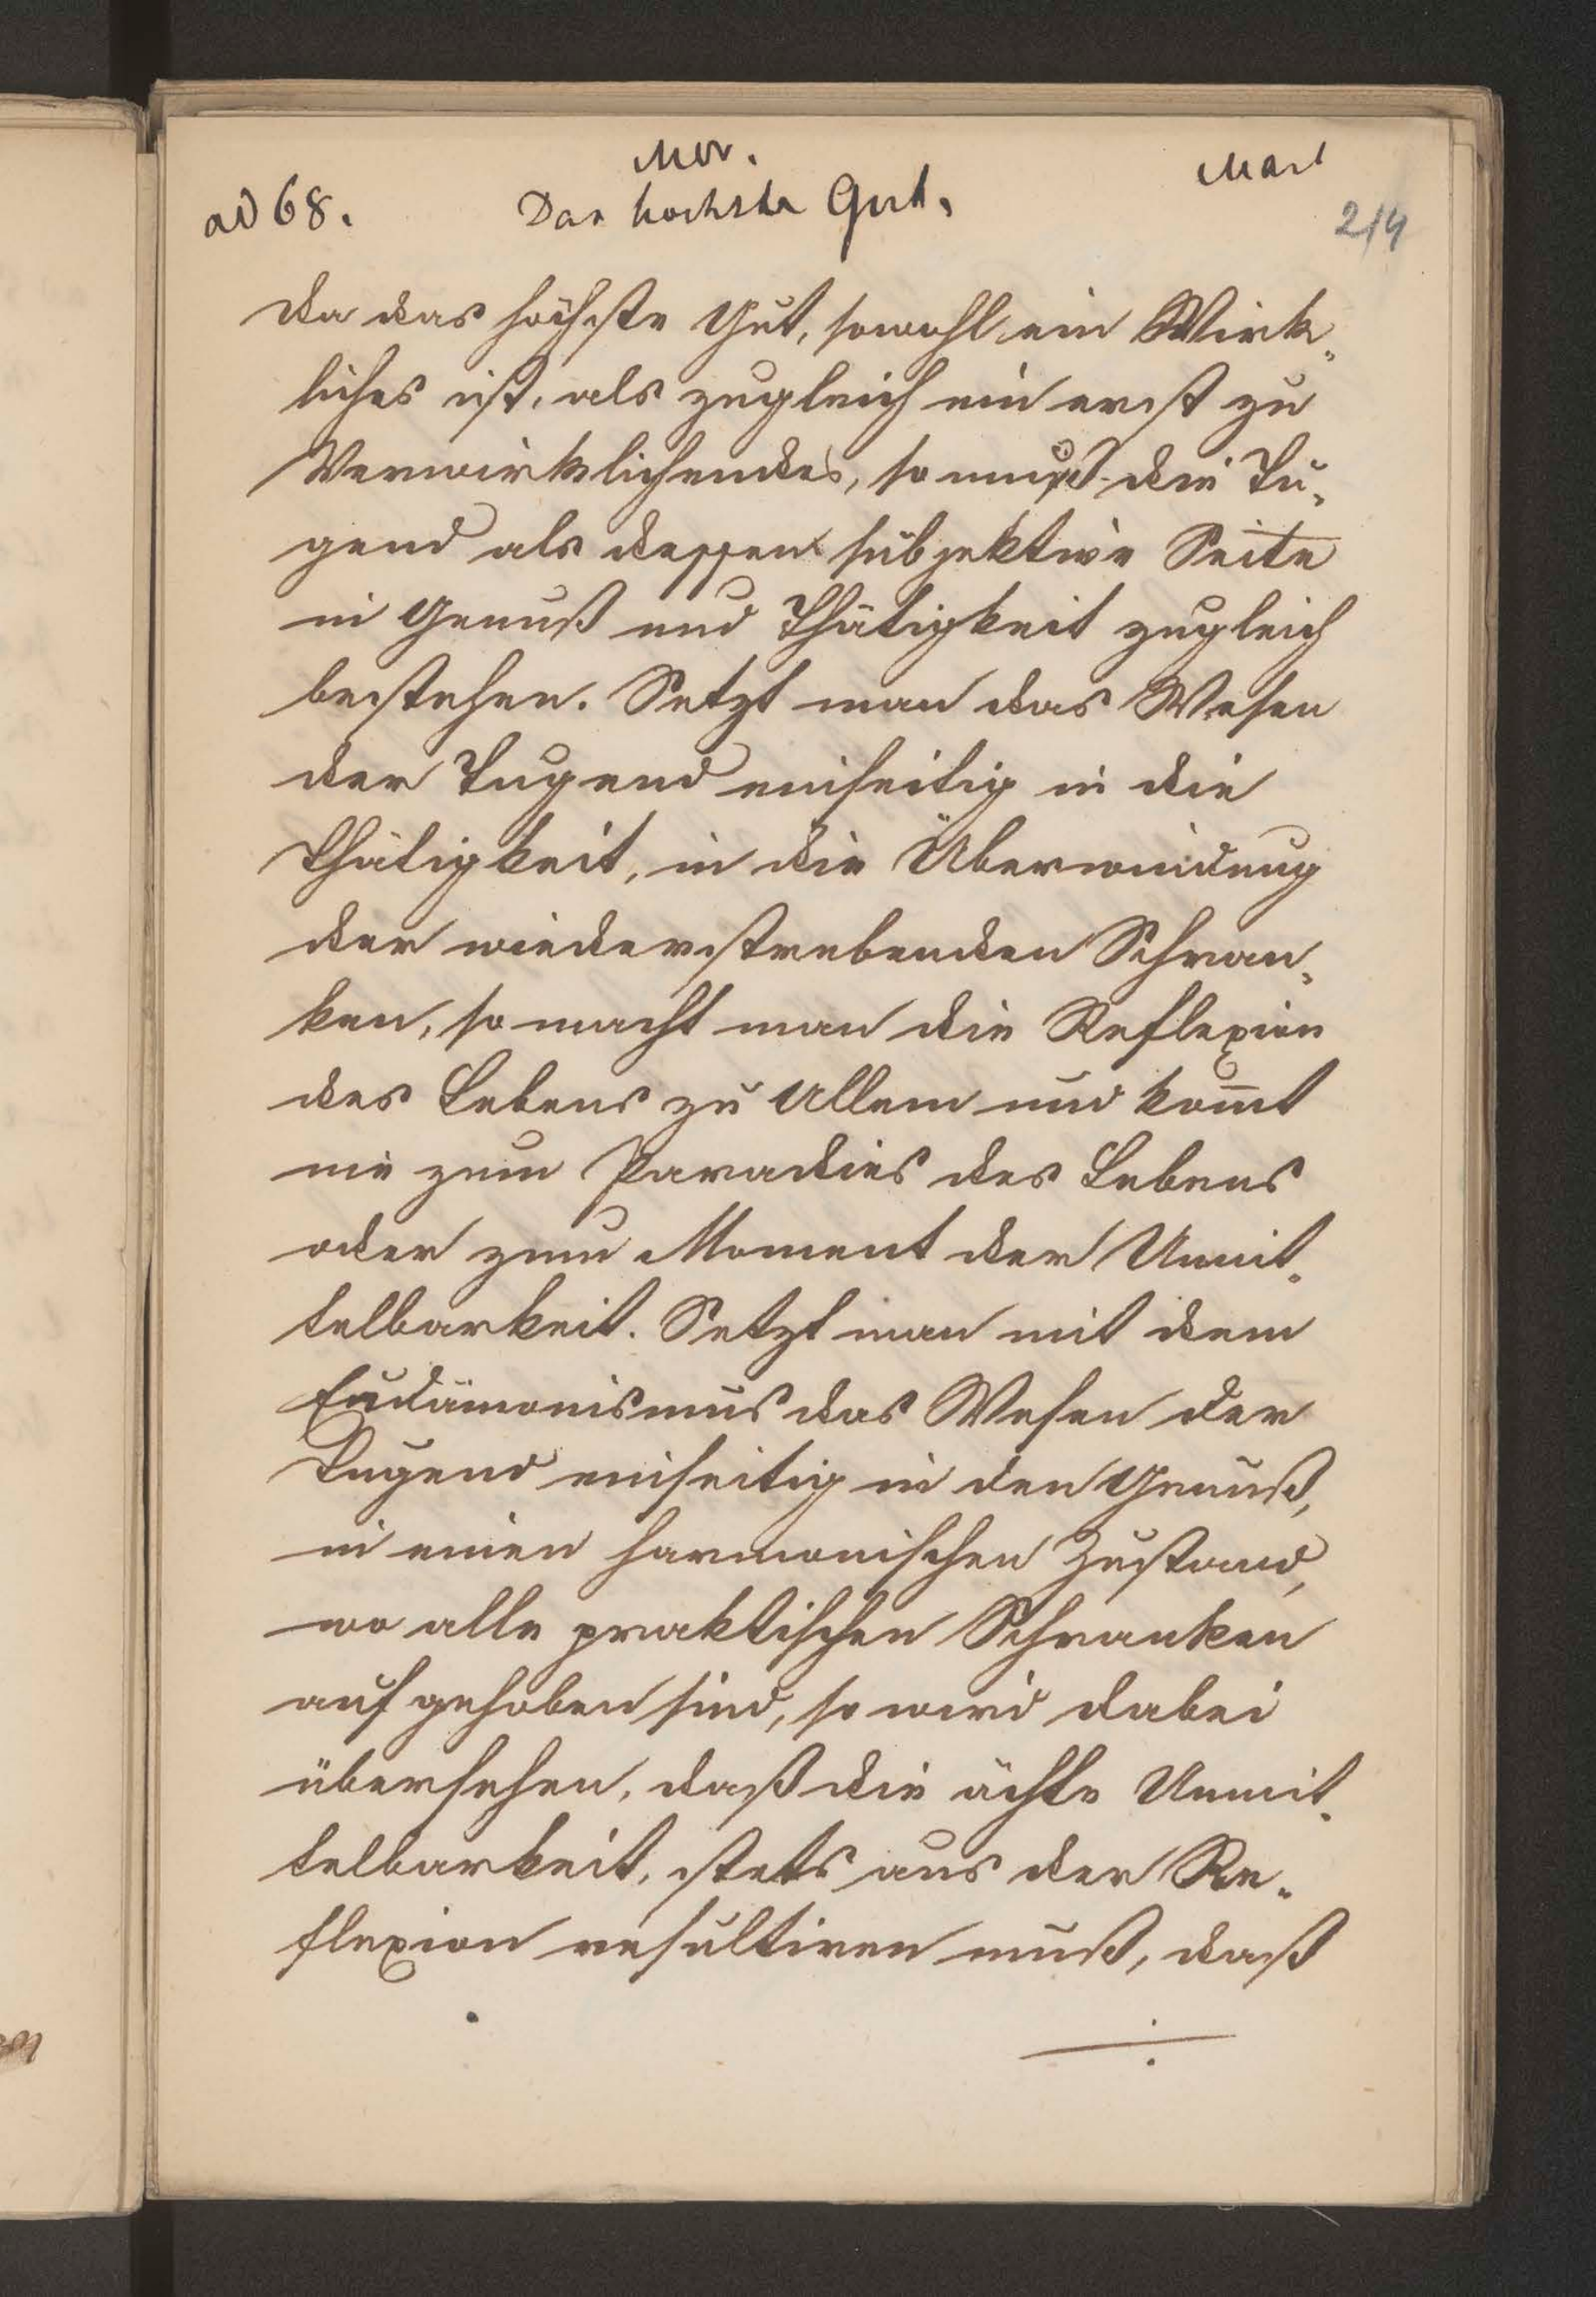 Mor.
Mart
ad 68.
Das höchste Gut.
214
Da das höchste Gut, sowohl ein Wirk„
liches ist, als zugleich ein erst zu
Verwirklichendes, so muß die Tu„
gend als dessen subjektive Seite
in Genuß und Thätigkeit zugleich
bestehen. Setzt man das Wesen
der Tugend einseitig in die
Thätigkeit, in die Überwindung
der wiederstrebenden Schran„
ken, so macht man die Reflexion
des Lebens zu Allem und kom̅t
nie zum Paradies des Lebens
oder zum Moment der Unmit„
telbarkeit. Setzt man mit dem
Eudämonismus das Wesen der
Tugend einseitig in den Genuß,
in einen harmonischen Zustand,
wo alle praktischen Schranken
aufgehoben sind, so wird dabei
übersehen, daß die ächte Unmit„
telbarkeit, stets aus der Re„
flexion resultiren muß, daß